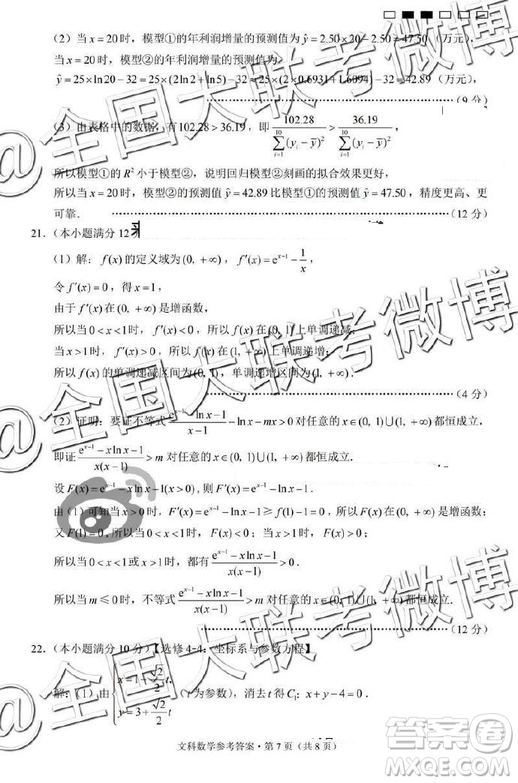 （2）当 x = 20 时，模型①的年利润增量的预测值为 ŷ = 2.50×20−2.50 = 47.50（万元），
当 x = 20 时，模型②的年利润增量的预测值为
ŷ = 25×ln20−32 = 25×(2ln2+ln5)−32 = 25×(2×0.6931+1.6094)−32 = 42.89（万元），
（9 分）
（3）由表格中的数据，有102.28 > 36.19，即 102.28/∑(yᵢ−ȳ)² > 36.19/∑(yᵢ−ȳ)²，
所以模型①的 R² 小于模型②，说明回归模型②刻画的拟合效果更好，
所以当 x = 20 时，模型②的预测值 42.89 比模型①的预测值 47.50，精度更高、更
可靠． （12 分）
21.（本小题满分 12
（1）解：f(x) 的定义域为 (0, +∞)，f′(x) = e^(x−1) − 1/x，
令 f′(x) = 0，得 x = 1，
由于 f′(x) 在 (0, +∞) 是增函数，
所以当 0 < x < 1时，f′(x) < 0，所以 f(x) 在 (0, 1) 上单调递减，
当 x > 1时，f′(x) > 0，所以 f(x) 在 (1, +∞) 上单调递增，
所以 f(x) 的单调递减区间为 (0, 1)，单调递增区间为 (1, +∞)．
（4 分）
（2）证明：要证不等式 (e^(x−1) − ln x − 1)/(x−1) − ln x − mx > 0 对任意的 x∈(0, 1)∪(1, +∞) 都恒成立，
即证 (e^(x−1) − x ln x − 1)/(x(x−1)) > m 对任意的 x∈(0, 1)∪(1, +∞) 都恒成立．
设 F(x) = e^(x−1) − x ln x − 1(x > 0)，则 F′(x) = e^(x−1) − ln x − 1．
由（1）可知当 x > 0时，F′(x) = e^(x−1) − ln x − 1 ≥ f(1) − 1 = 0，所以 F(x) 是增函数；
又 F(1) = 0，所以当 0 < x < 1时，F(x) < 0；当 x > 1时，F(x) > 0；
所以当 0 < x < 1或 x > 1时，都有 (e^(x−1) − x ln x − 1)/(x(x−1)) > 0．
所以当 m ≤ 0 时，不等式 (e^(x−1) − x ln x − 1)/(x(x−1)) > m 对任意的 x∈(0, 1)∪(1, +∞) 都恒成立．
（12 分）
22.（本小题满分 10 分）【选修 4-4：坐标系与参数方程】
解：（1）由 { x = 1 + (√2/2)t, y = 3 + (√2/2)t （t 为参数），消去 t 得 C₁：x + y − 4 = 0．
文科数学参考答案·第 7 页（共 8 页）
@全国大联考微博
@全国大联考微博
@全国大联考微博
答案圈
MXQE.COM